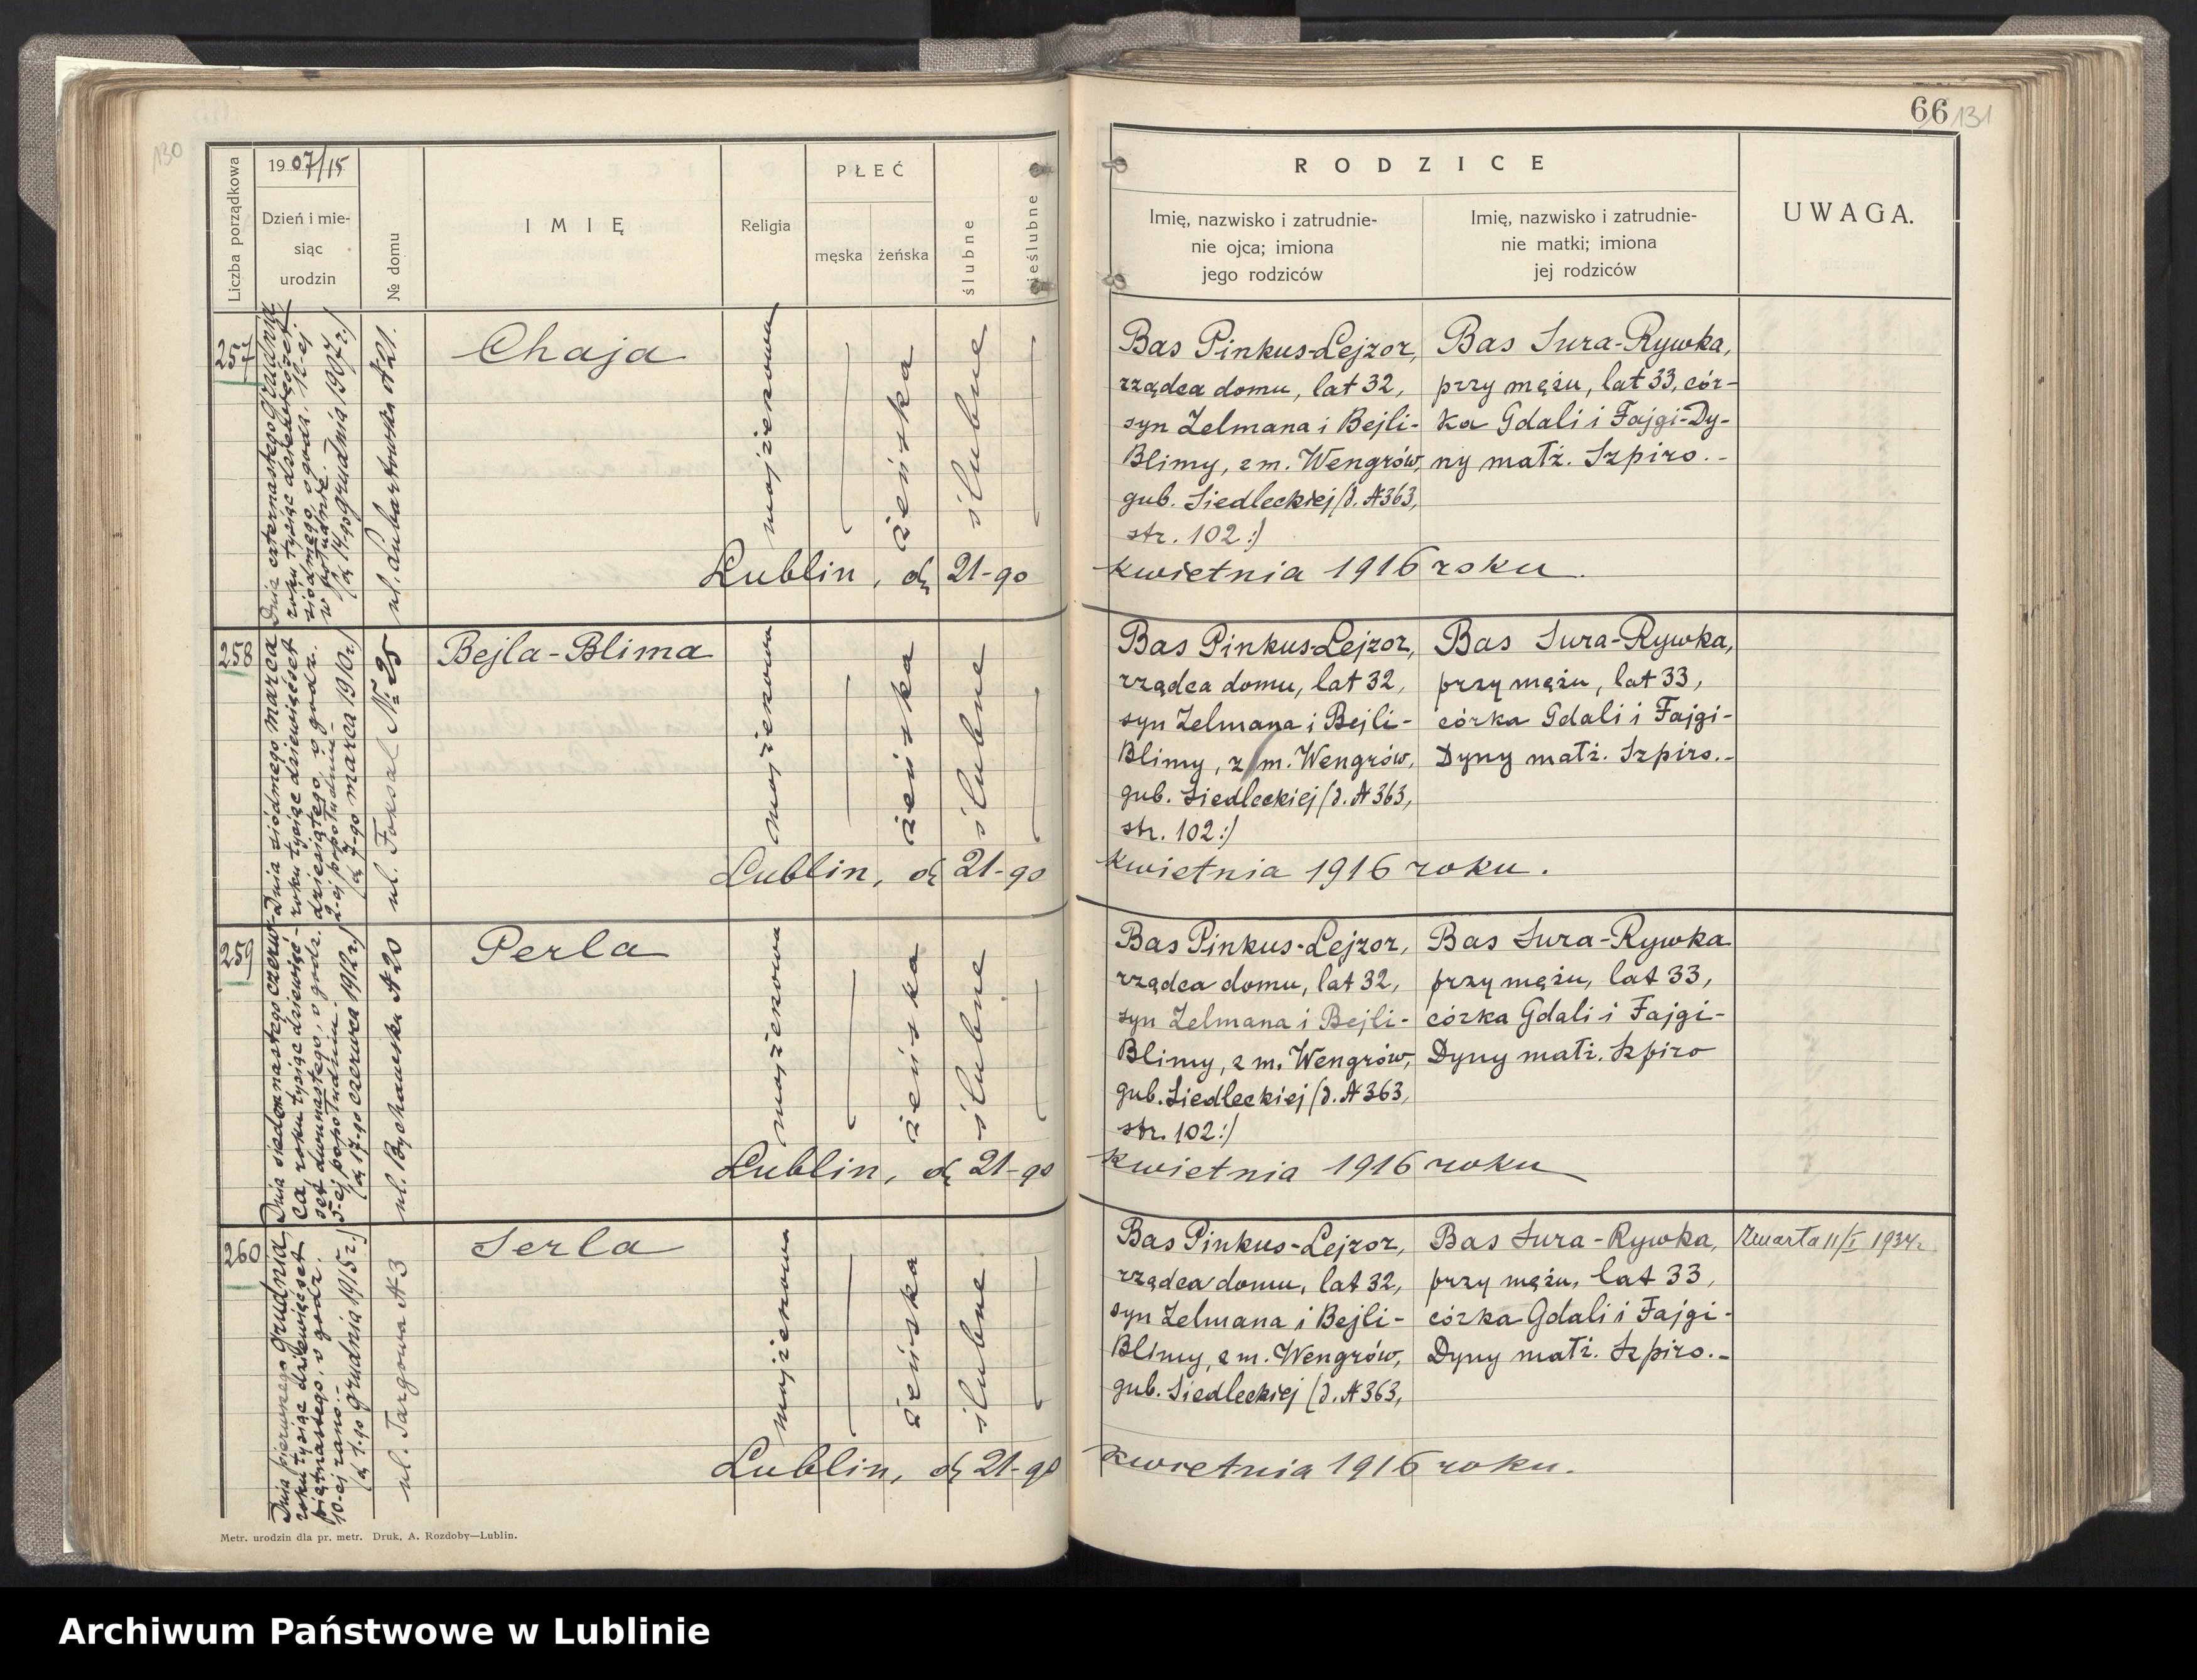 130
66 131
1907/15
Liczba porządkowa
Dzień i mie-
siąc
urodzin
№ domu
IMIĘ
Religia
PŁEĆ
męska
żeńska
ślubne
nieślubne
RODZICE
Imię, nazwisko i zatrudnie-
nie ojca; imiona
jego rodziców
Imię, nazwisko i zatrudnie-
nie matki; imiona
jej rodziców
UWAGA.
257
Dnia czternastego grudnia
roku tysiąc dziewięćset
siódmego, o godz. 12-ej
w południe.
(d. 14-go grudnia 1907 r.)
ul. Lubartowska № 21.
Chaja
mojżeszowa
żeńska
ślubne
Bas Pinkus-Lejzor,
rządca domu, lat 32,
syn Zelmana i Bejli-
Blimy, z m. Wengrów,
gub. Siedleckiej (d. № 363,
str. 102:)
Bas Sura-Rywka,
przy mężu, lat 33, cór-
ka Gdali i Fajgi-Dy-
ny małż. Szpiro.-
Lublin, d. 21-go kwietnia 1916 roku.
258
Dnia siódmego marca
roku tysiąc dziewięćset
dziesiątego, o godz.
2-ej popołudniu.-
(d. 7-go marca 1910 r.)
ul. Foksal № 25
Bejla-Blima
mojżeszowa
żeńska
ślubne
Bas Pinkus-Lejzor,
rządca domu, lat 32,
syn Zelmana i Bejli-
Blimy, z m. Wengrów,
gub. Siedleckiej (d. № 363,
str. 102:)
Bas Sura-Rywka,
przy mężu, lat 33,
córka Gdali i Fajgi-
Dyny małż. Szpiro.-
Lublin, d. 21-go kwietnia 1916 roku.
259
Dnia siedemnastego czerw-
ca, roku tysiąc dziewięć-
set dwunastego, o godz.
5-ej popołudniu.-
(d. 17-go czerwca 1912 r.)
ul. Bychawska № 20
Perla
mojżeszowa
żeńska
ślubne
Bas Pinkus-Lejzor,
rządca domu, lat 32,
syn Zelmana i Bejli-
Blimy, z m. Wengrów,
gub. Siedleckiej (d. № 363,
str. 102:)
Bas Sura-Rywka
przy mężu, lat 33,
córka Gdali i Fajgi-
Dyny małż. Szpiro
Lublin, d. 21-go kwietnia 1916 roku
260
Dnia pierwszego grudnia,
roku tysiąc dziewięćset
piętnastego, o godz.
10-ej rano.-
(d. 1-go grudnia 1915 r.)
ul. Targowa № 3
Serla
mojżeszowa
żeńska
ślubne
Bas Pinkus-Lejzor,
rządca domu, lat 32,
syn Zelmana i Bejli-
Blimy, z m. Wengrów,
gub. Siedleckiej (d. № 363,
Bas Sura-Rywka,
przy mężu, lat 33,
córka Gdali i Fajgi-
Dyny małż. Szpiro.-
Zmarła 11/I 1934 r.
Lublin, d. 21-go kwietnia 1916 roku.
Metr. urodzin dla pr. metr. Druk. A. Rozdoby—Lublin.
Archiwum Państwowe w Lublinie